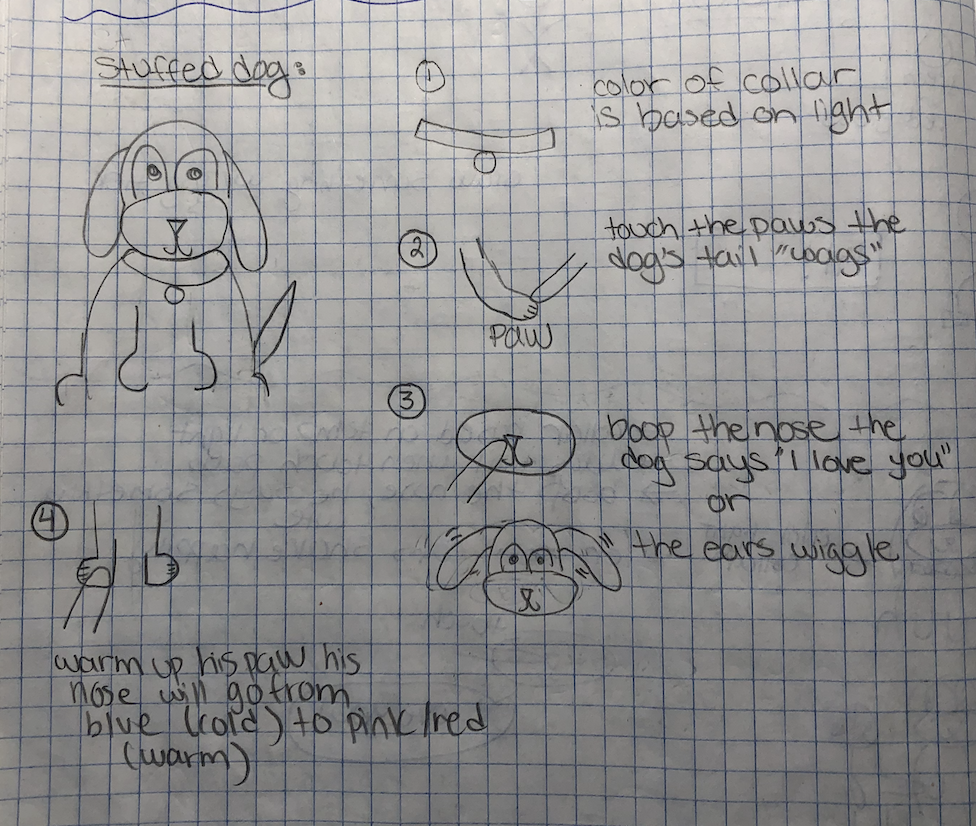 Stuffed dog:
①
color of collar
is based on light
②
touch the paws the
dog's tail "wags"
paw
③
boop the nose the
dog says "I love you"
or
the ears wiggle
④
warm up his paw his
nose will go from
blue (cold) to pink/red
(warm)